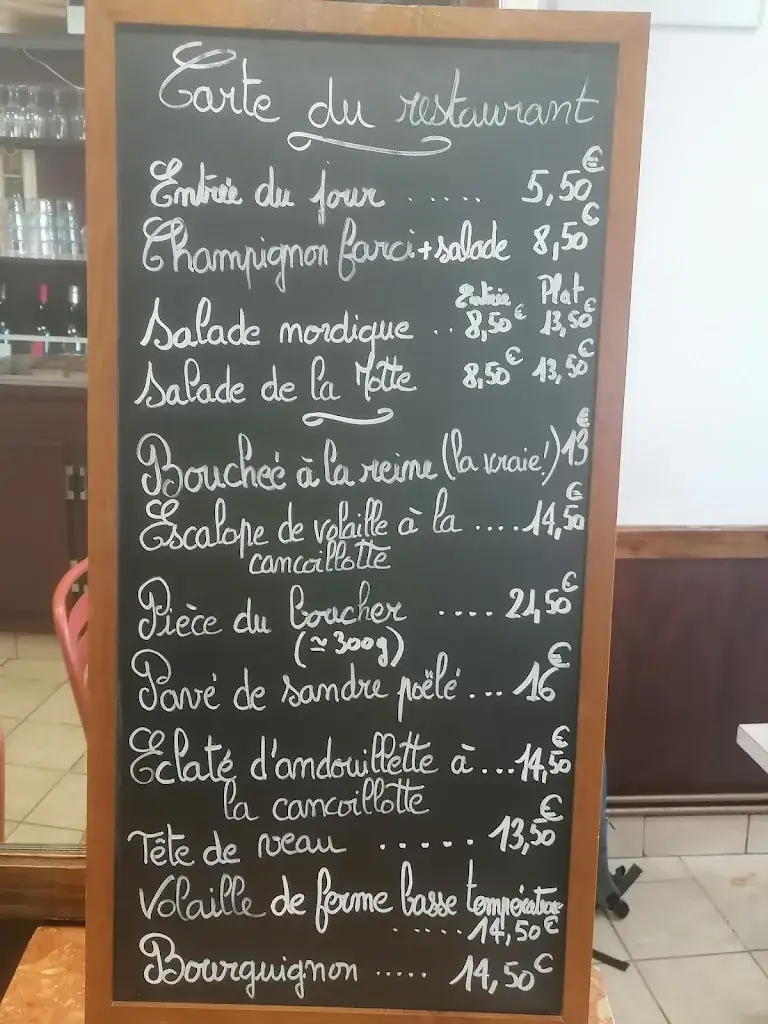 Carte du restaurant
Entrée du jour ..... 5,50€
Champignon farci + salade 8,50€
Entrée Plat
Salade nordique .. 8,50€ 13,50€
Salade de la Motte 8,50€ 13,50€
Bouchée à la reine (la vraie!) 13€
Escalope de volaille à la .... 14,50€
cancoillotte
Pièce du boucher .... 21,50€
(≃ 300g)
Pavé de sandre poêlé ... 16€
Eclaté d'andouillette à ... 14,50€
la cancoillotte
Tête de veau ..... 13,50€
Volaille de ferme basse température
..... 14,50€
Bourguignon ..... 14,50€